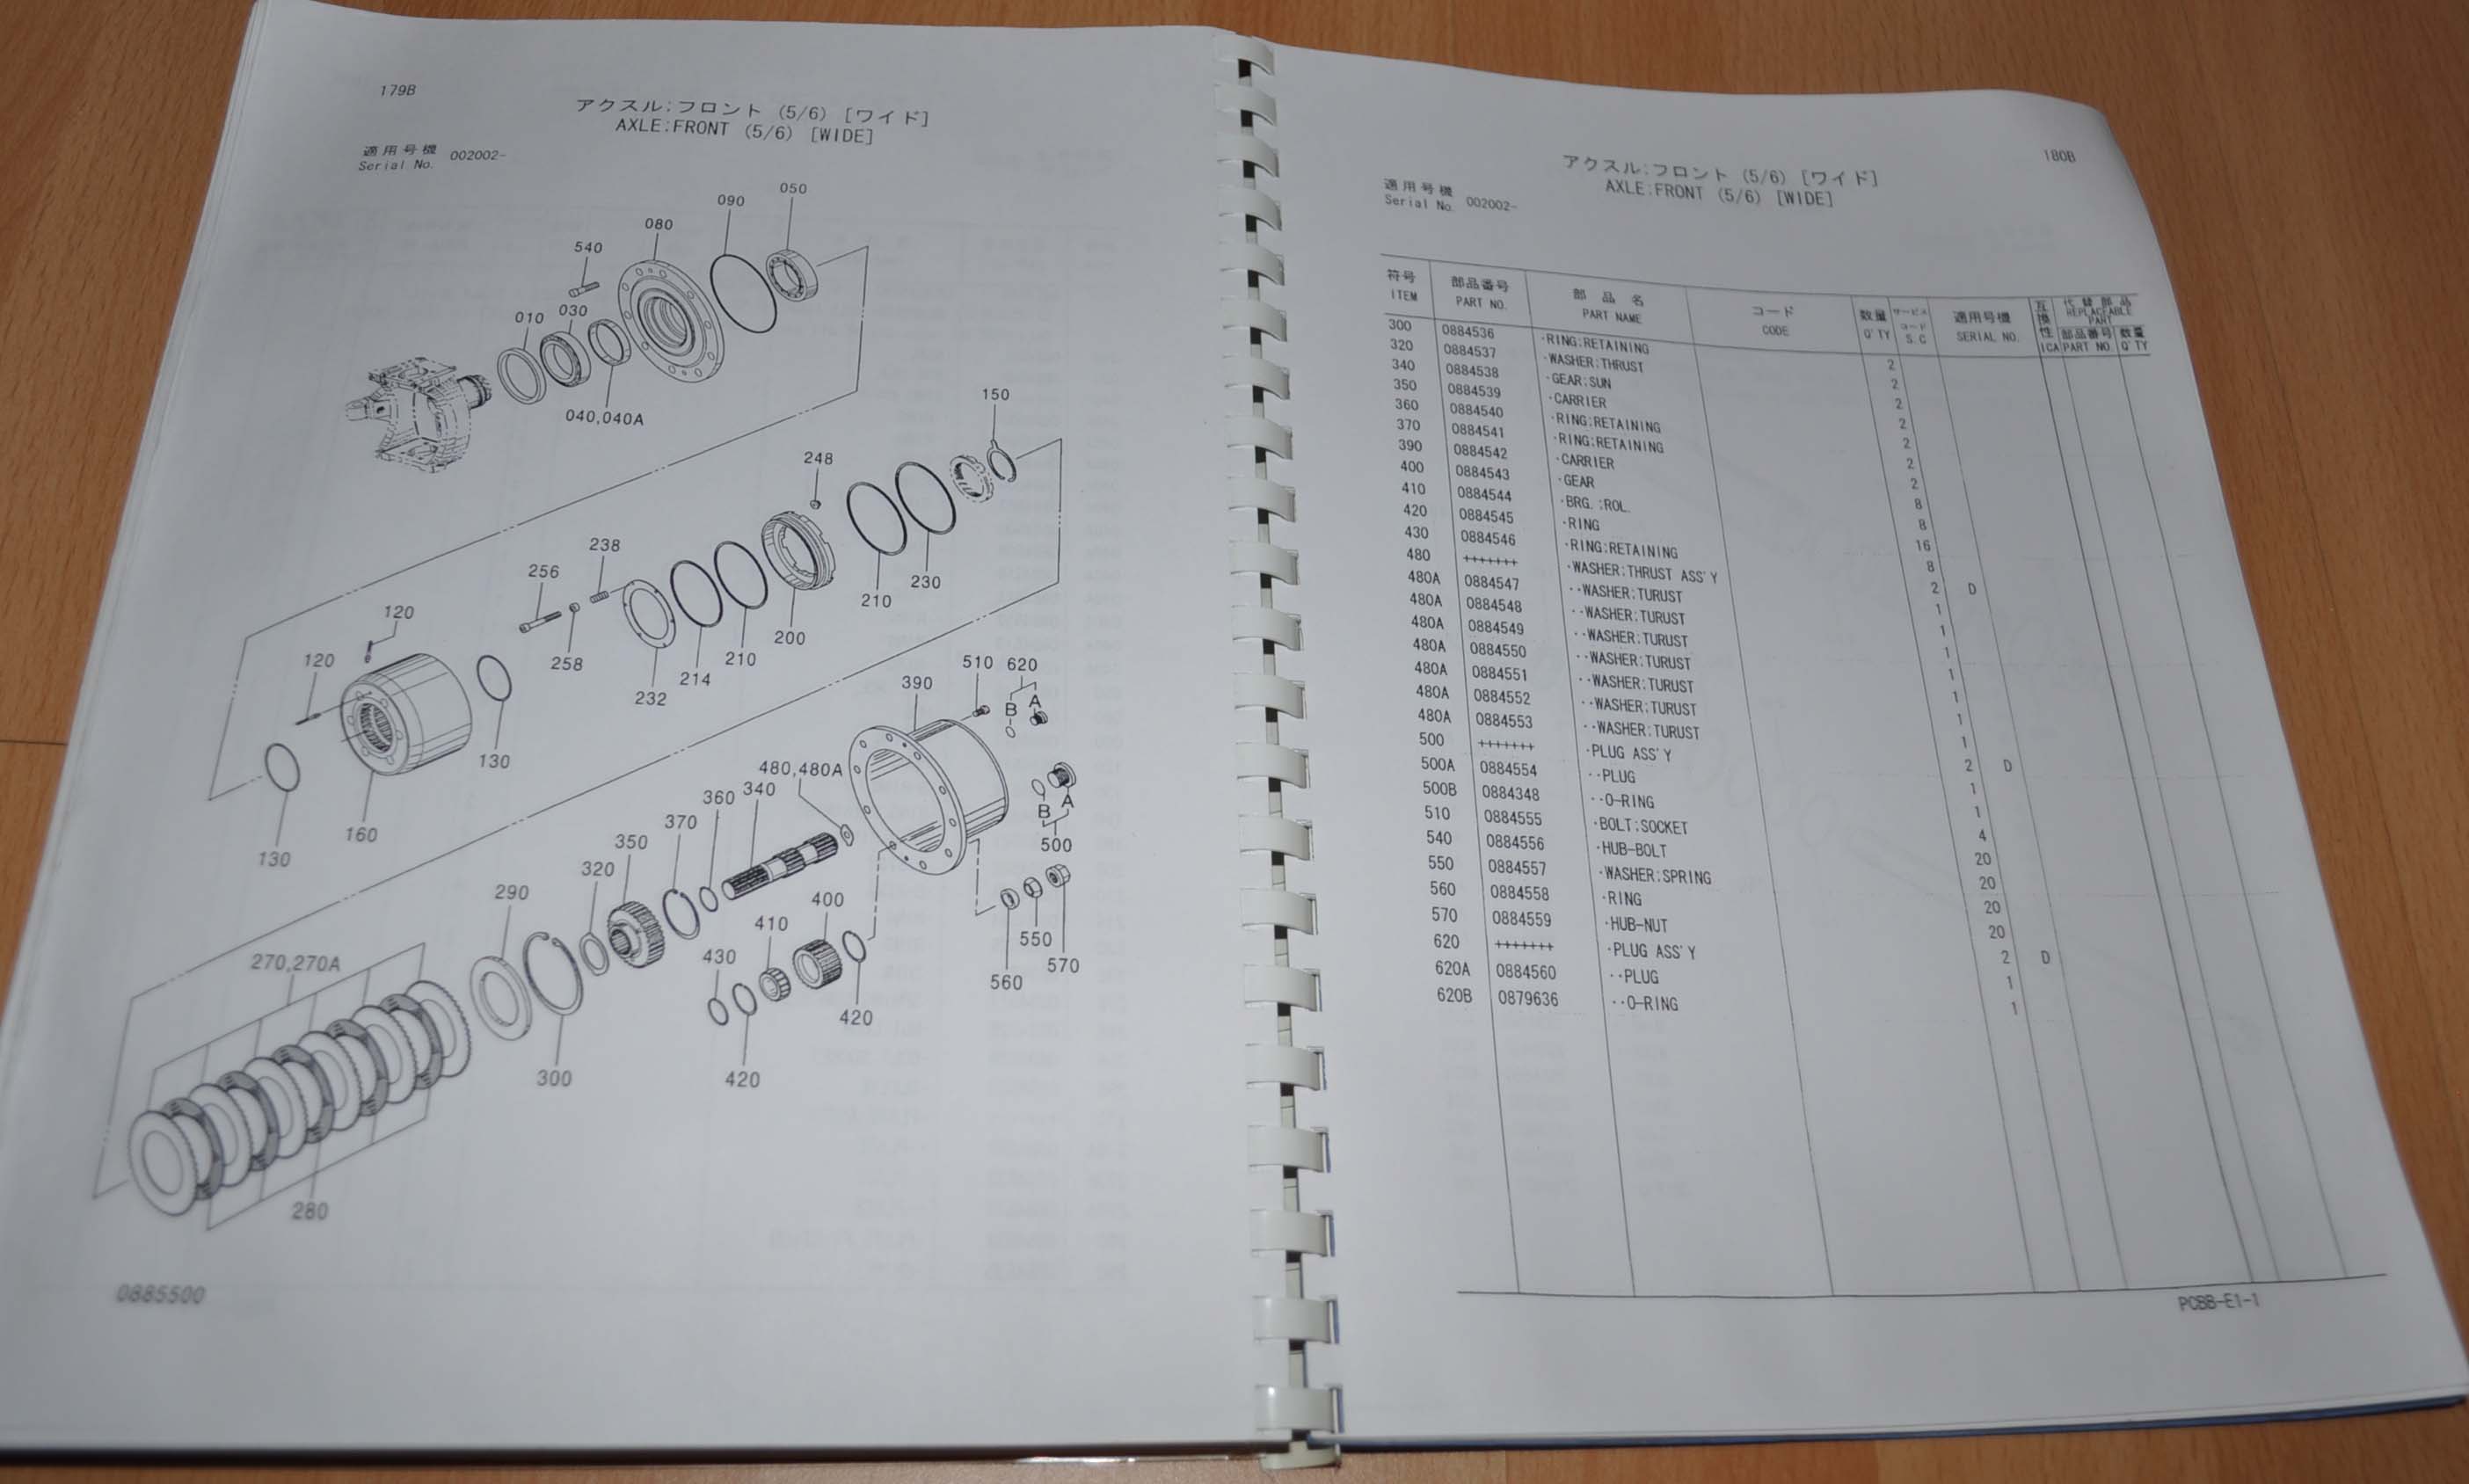 179B
アクスル:フロント (5/6) [ワイド]
AXLE:FRONT (5/6) [WIDE]
適用号機
Serial No. 002002-
050
090
080
540
030
010
040,040A
150
248
238
256
258
230
210
200
210
214
232
120
120
130
160
130
510 620
390
B A
480,480A
340
360
370
350
320
290
A
B
500
400
410
430
550
570
560
420
420
300
270,270A
280
0885500
180B
アクスル:フロント (5/6) [ワイド]
AXLE:FRONT (5/6) [WIDE]
適用号機
Serial No. 002002-
符号 部品番号 部品名 コード 数量 サービスコード 適用号機 互換性 代替部品
ITEM PART NO. PART NAME CODE Q'TY S.C SERIAL NO. ICA REPLACEABLE PART
部品番号 数量
PART NO. Q'TY
300 0884536 ·RING:RETAINING 2
320 0884537 ·WASHER:THRUST 2
340 0884538 ·GEAR:SUN 2
350 0884539 ·CARRIER 2
360 0884540 ·RING:RETAINING 2
370 0884541 ·RING:RETAINING 2
390 0884542 ·CARRIER 2
400 0884543 ·GEAR 8
410 0884544 ·BRG.:ROL. 8
420 0884545 ·RING 16
430 0884546 ·RING:RETAINING 8
480 +++++++ ·WASHER:THRUST ASS'Y 2 D
480A 0884547 ··WASHER:TURUST 1
480A 0884548 ··WASHER:TURUST 1
480A 0884549 ··WASHER:TURUST 1
480A 0884550 ··WASHER:TURUST 1
480A 0884551 ··WASHER:TURUST 1
480A 0884552 ··WASHER:TURUST 1
480A 0884553 ··WASHER:TURUST 1
500 +++++++ ·PLUG ASS'Y 2 D
500A 0884554 ··PLUG 1
500B 0884348 ··O-RING 1
510 0884555 ·BOLT:SOCKET 4
540 0884556 ·HUB-BOLT 20
550 0884557 ·WASHER:SPRING 20
560 0884558 ·RING 20
570 0884559 ·HUB-NUT 20
620 +++++++ ·PLUG ASS'Y 2 D
620A 0884560 ··PLUG 1
620B 0879636 ··O-RING 1
PCBB-E1-1